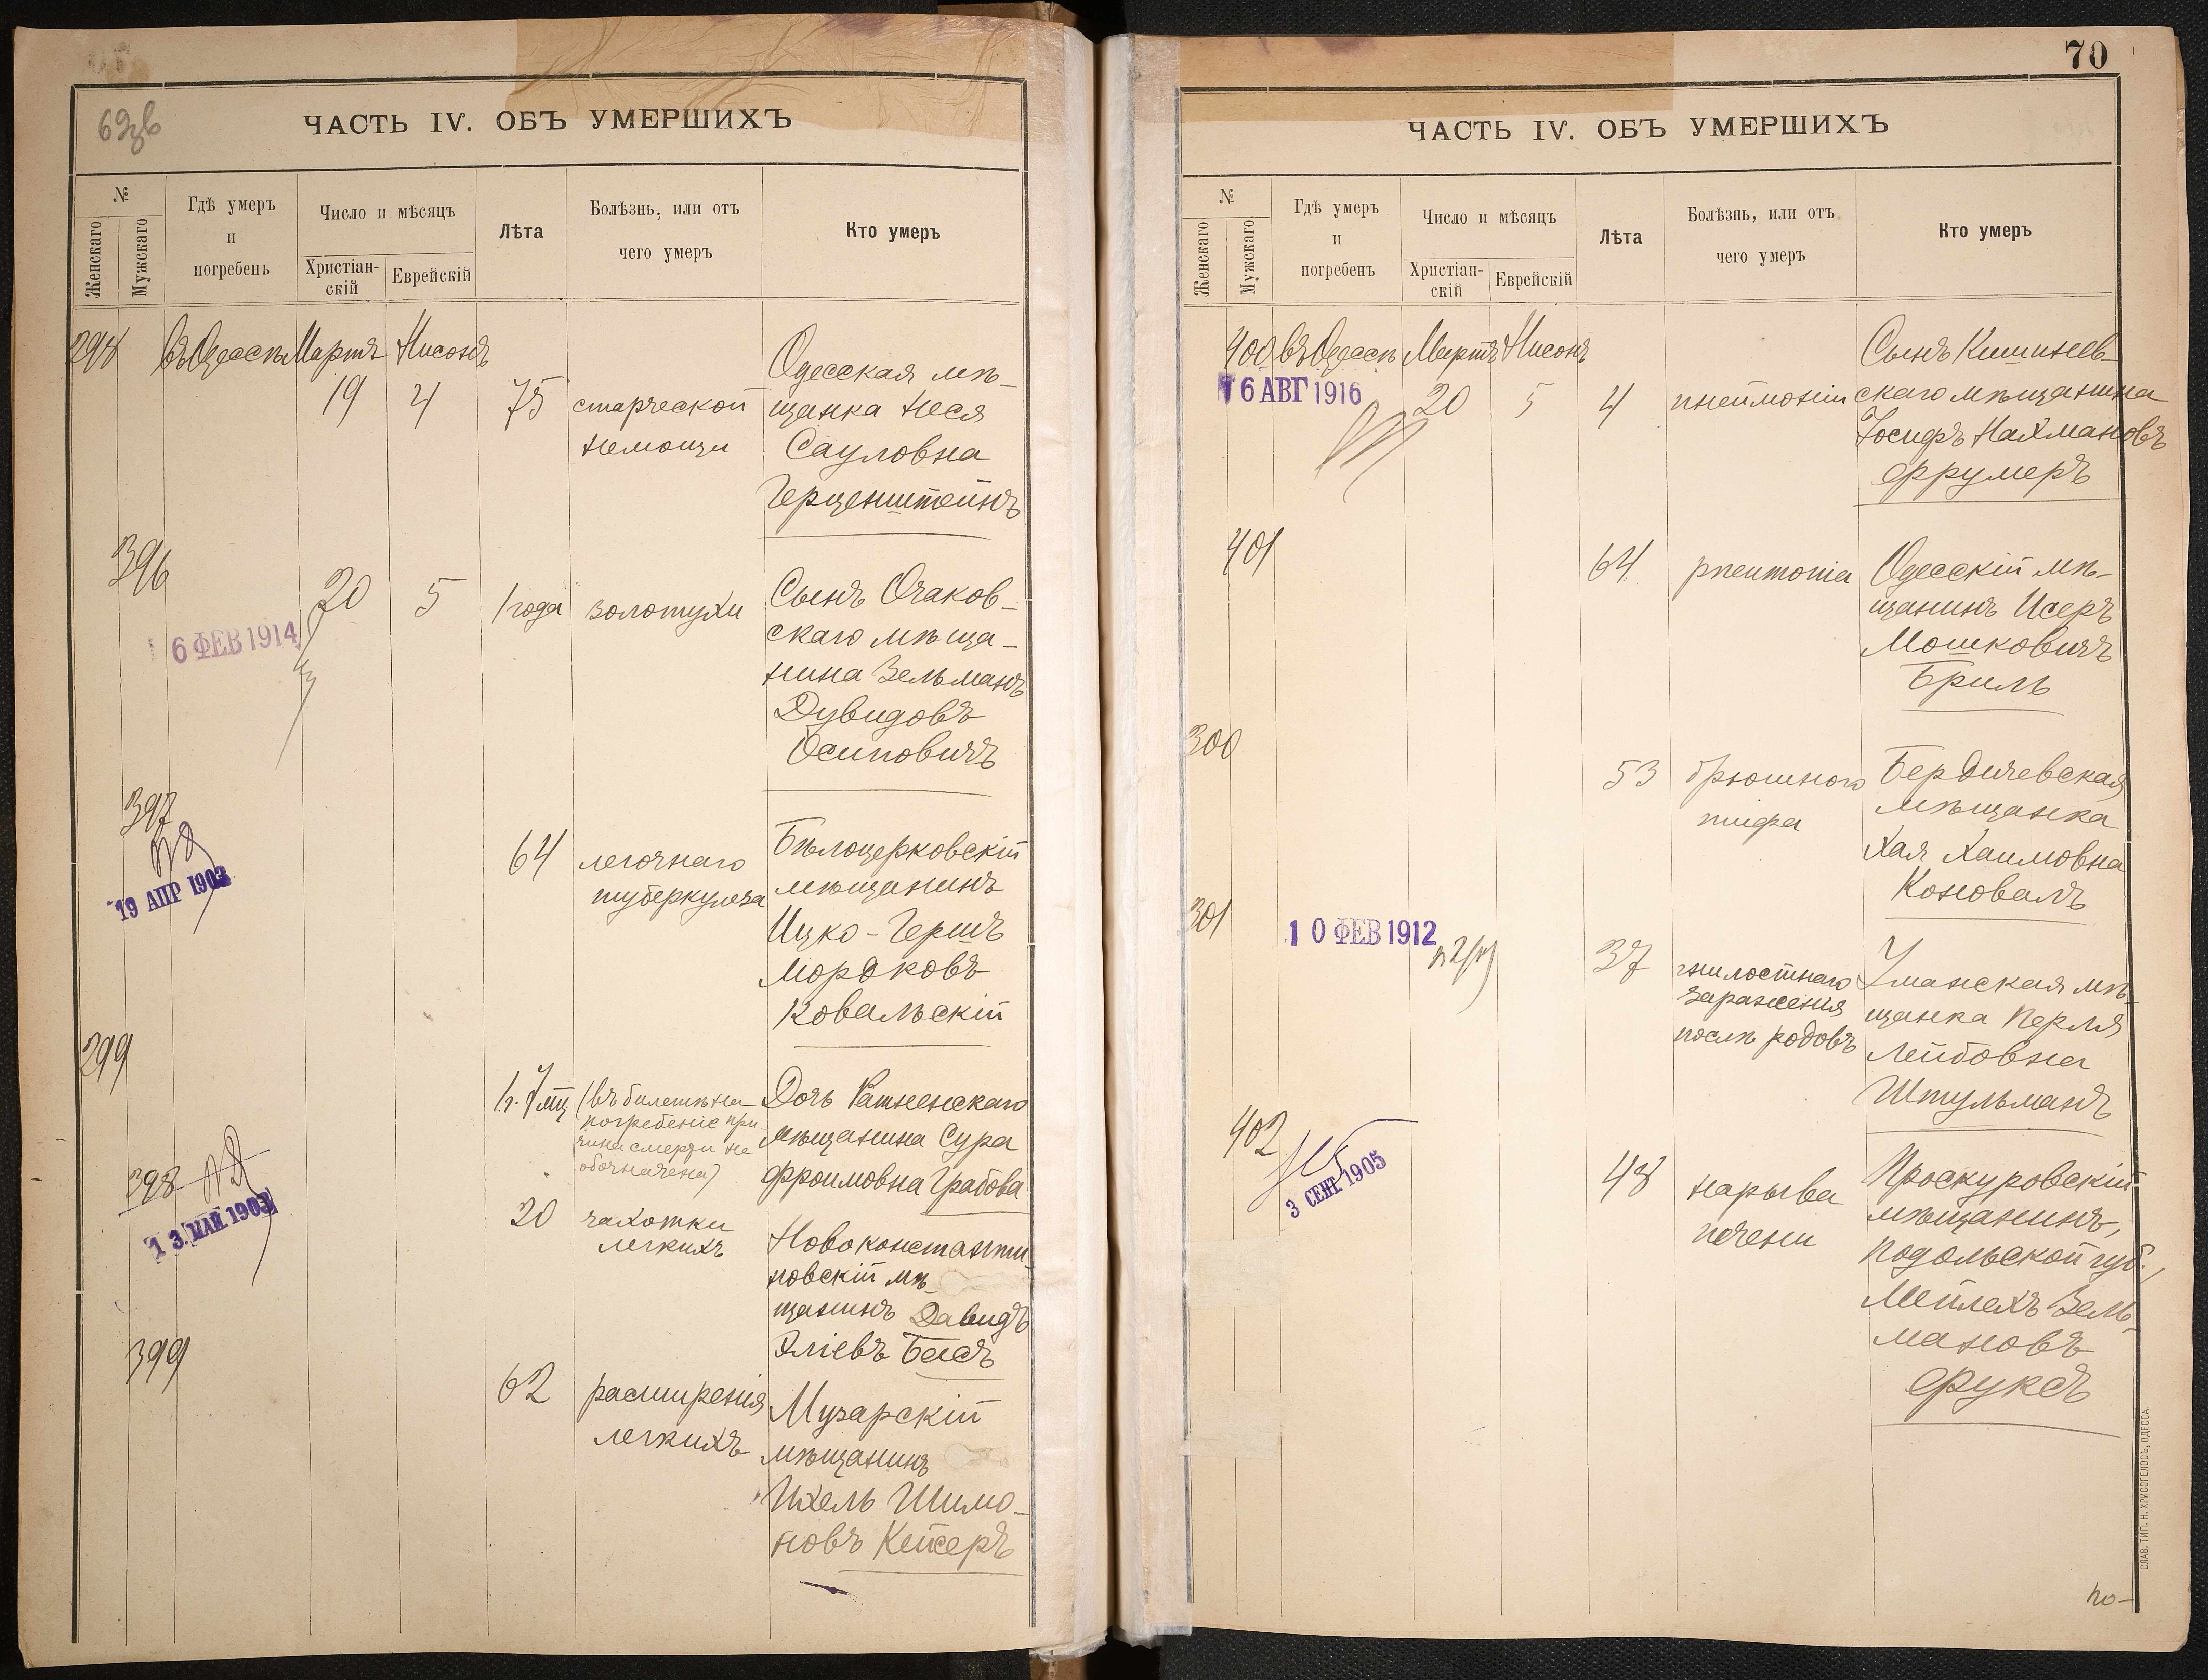 ЧАСТЬ IV. ОБЪ УМЕРШИХЪ
№
Женскаго
Мужскаго
Гдѣ умеръ
и
погребенъ
Число и мѣсяцъ
Христіан-
скій
Еврейскій
Лѣта
Болѣзнь, или отъ
чего умеръ
Кто умеръ
298 въ Одессѣ Мартъ Нисонъ
19 4 75 старческой
немощи
Одесская мѣ-
щанка Неся
Сауловна
Герценштейнъ
396
20 5 1 года золотухи
6 ФЕВ 1914
Сынъ Очаков-
скаго мѣща-
нина Зельманъ
Дувидовъ
Осиповичъ
397
19 АПР 1903
64 легочнаго
туберкулеза
Бѣлоцерковскій
мѣщанинъ
Ицко-Гершъ
Мордковъ
Ковальскій
299
(въ билетѣ на
погребеніе при-
чина смерти не
обозначена)
Дочь Ратненскаго
мѣщанина Сура
Фроимовна Грабова
398
13 МАЙ 1903
20 чахотки
легкихъ
Новоконстанти-
новскій мѣ-
щанинъ Давидъ
Эліевъ Басъ
399
62 расширенія
легкихъ
мѣщанинъ
Ихель Шимо-
новъ Кейсеръ
70
ЧАСТЬ IV. ОБЪ УМЕРШИХЪ
№
Женскаго
Мужскаго
Гдѣ умеръ
и
погребенъ
Число и мѣсяцъ
Христіан-
скій
Еврейскій
Лѣта
Болѣзнь, или отъ
чего умеръ
Кто умеръ
400 въ Одессѣ Мартъ Нисонъ
6 АВГ 1916
20 5 4 пнеймоніи
Сынъ Кишинев-
скаго мѣщанина
Іосифъ Нахмановъ
Фрумеръ
401
64 pneumonia
Одесскій мѣ-
щанинъ Исеръ
Мошковичъ
Бриль
300
53 брюшного
тифа
Бердичевская
мѣщанка
Хая Хаимовна
Коновалъ
301
10 ФЕВ 1912
37 гнилостнаго
зараженія
послѣ родовъ
Уманская мѣ-
щанка Перля
Лейбовна
Штульманъ
402
3 СЕН 1905
48 нарыва
печени
Проскуровскій
мѣщанинъ,
Подольской губ.,
Мейлехъ Зель-
мановъ
Фуксъ
по-
СЛАВ. ТИП. Н. ХРИСОГЕЛОСЪ, ОДЕССА.